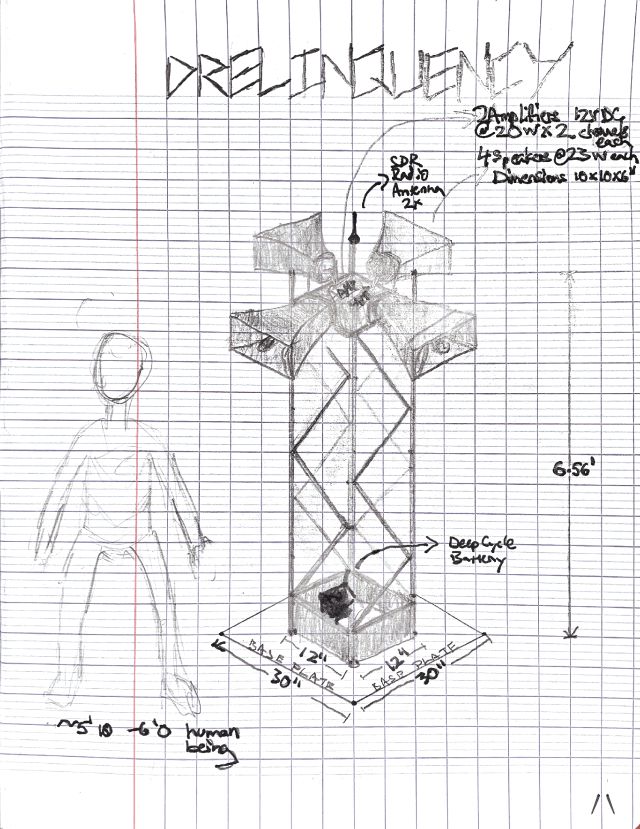 DRELINQUENCY
2 Amplifiers 12V DC
@ 20W x 2 channels
each
4 Speakers @ 23W each
Dimensions 10x10x6"
SDR
Radio
Antenna
2x
AMP
6.56'
Deep Cycle
Battery
12" 12"
BASE PLATE BASE PLATE
30" 30"
~5'10 - 6'0 human
being